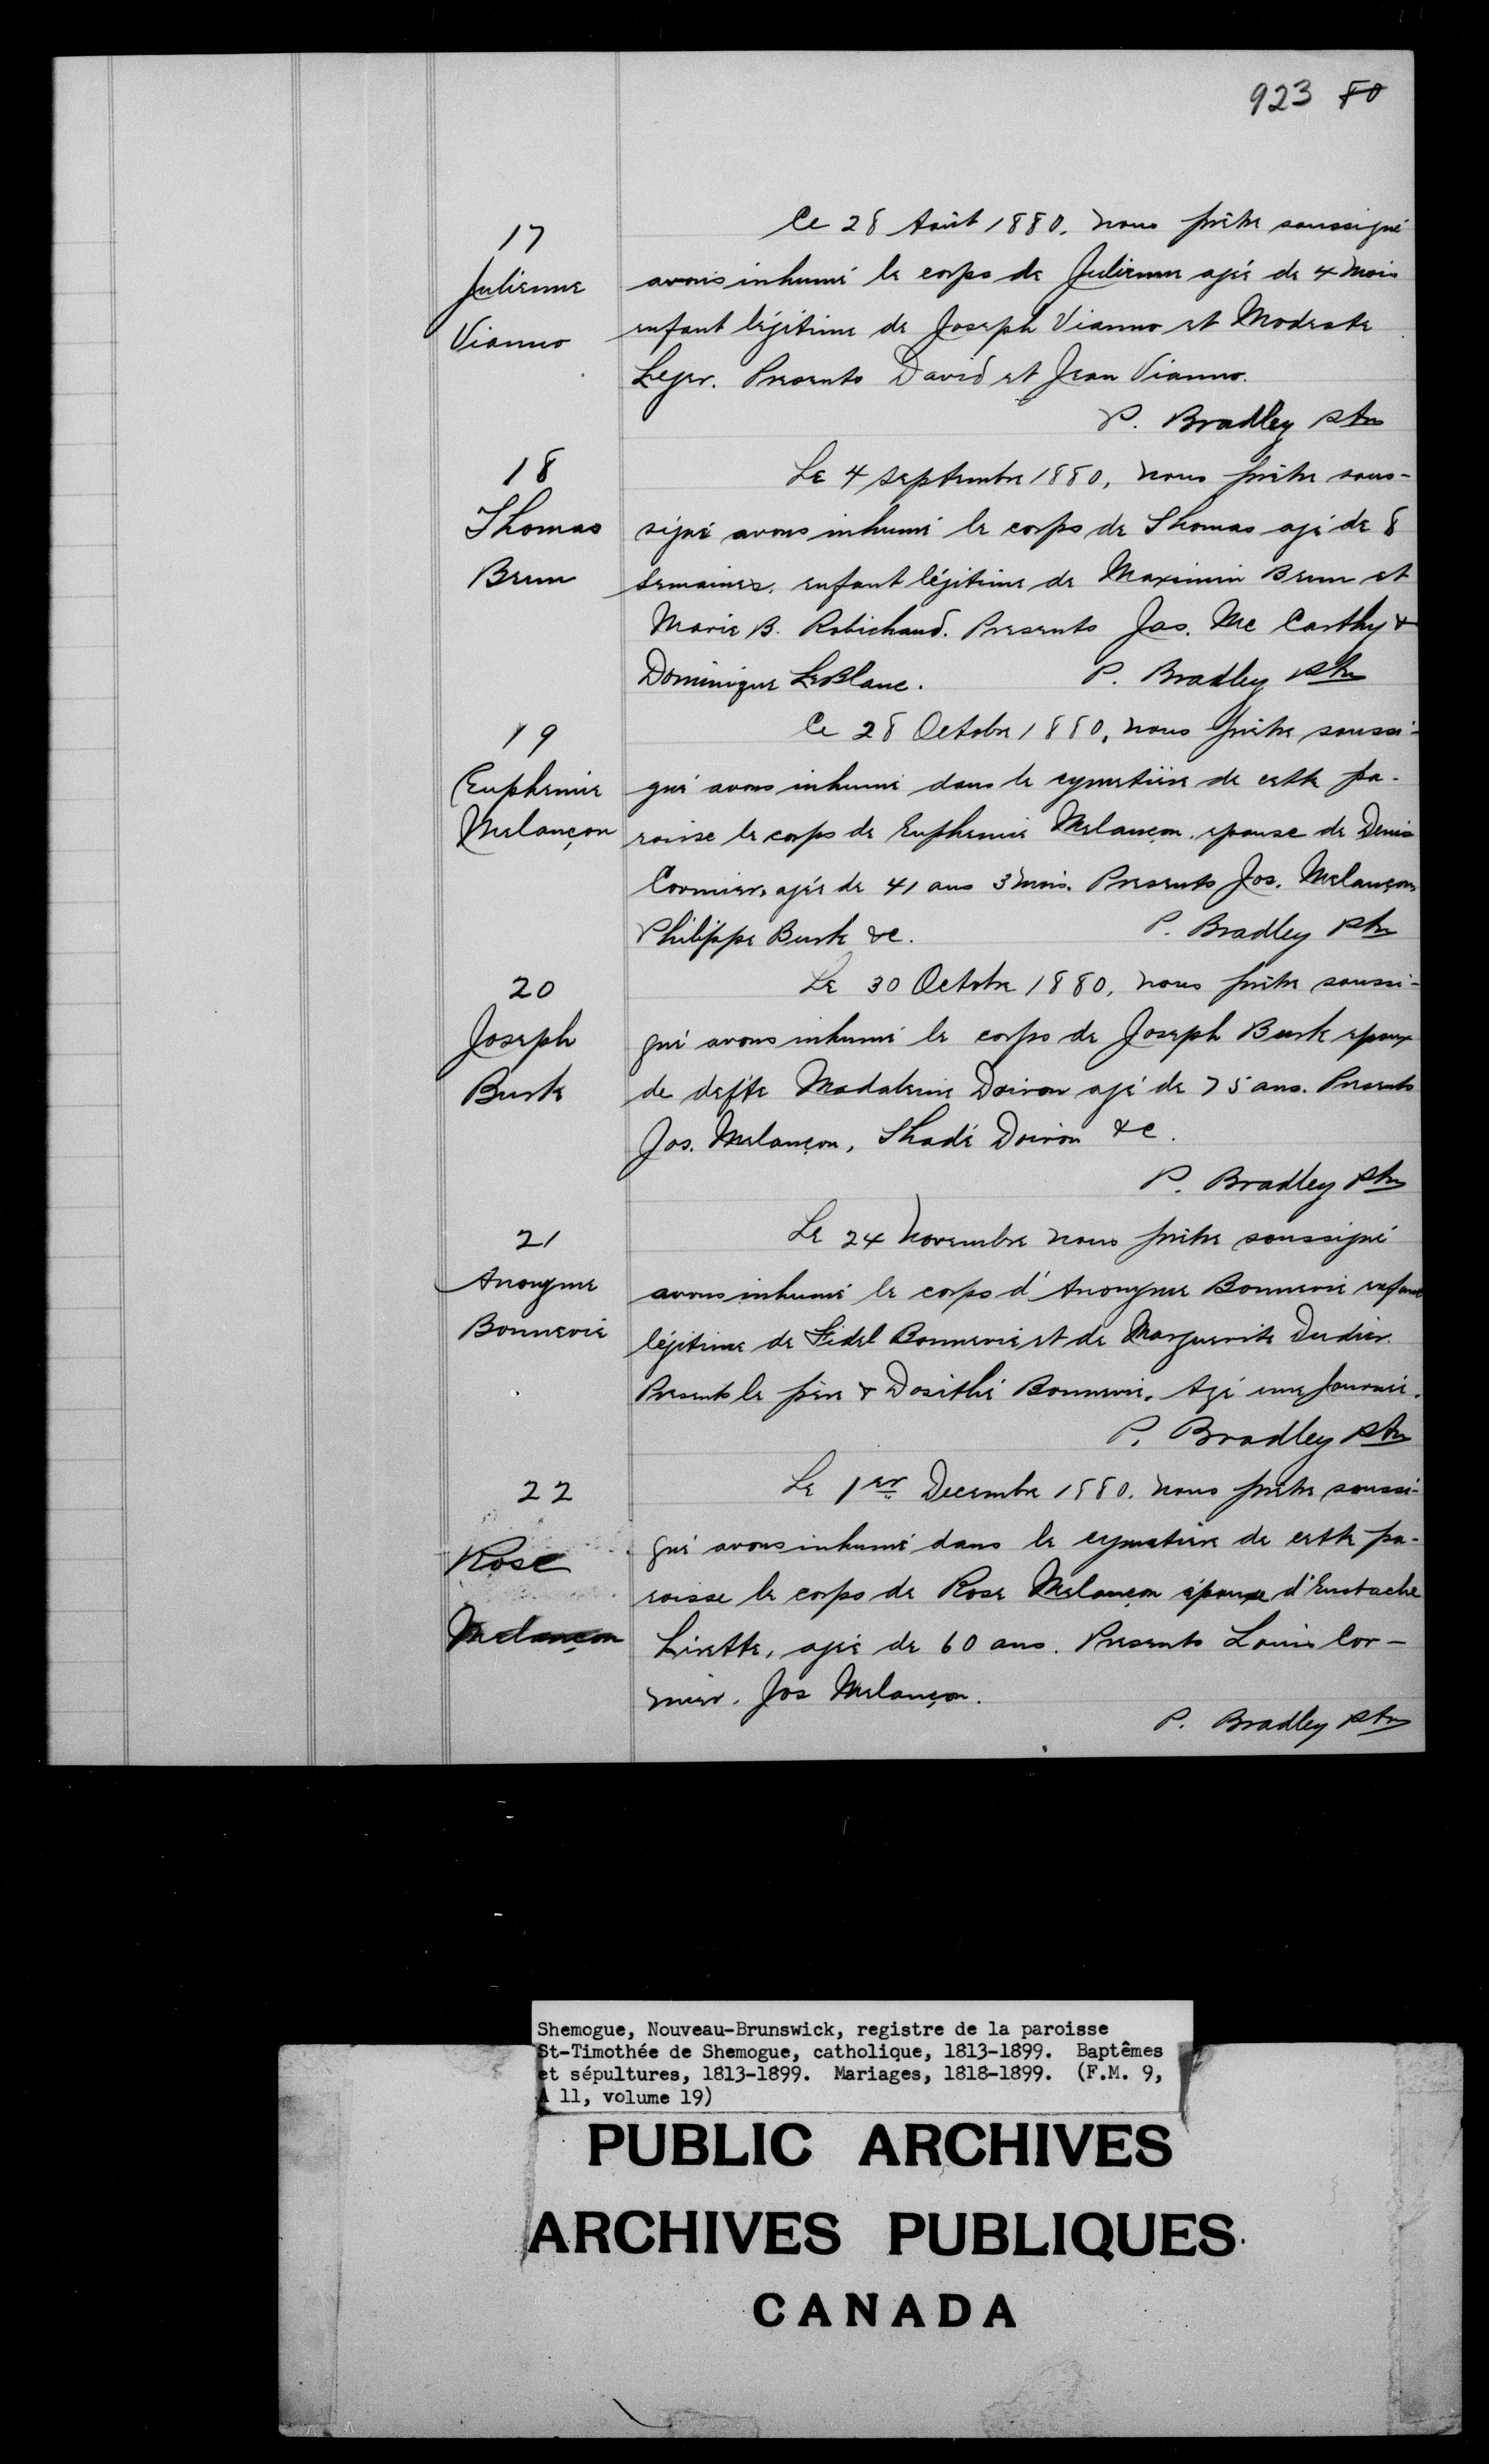 923 80
17
Julienne
Vianno
Ce 28 Août 1880. nous prêtre soussigné
avons inhumé le corps de Julienne agée de 4 mois
enfant légitime de Joseph Vianno et Modeste
Leger. Presents David et Jean Vianno.
P. Bradley ptre
18
Thomas
Brun
Le 4 septembre 1880, nous prêtre sous-
signé avons inhumé le corps de Thomas agé de 8
semaines, enfant légitime de Maximin Brun et
Marie B. Robichaud. Presents Jas. Mc Carthy &
Dominique LeBlanc. P. Bradley ptre
19
Euphemie
Melançon
Ce 28 Octobre 1880, nous prêtre soussi-
gné avons inhumé dans le cymetière de cette pa-
roisse le corps de Euphemie Melançon, epouse de Denis
Cormier, agée de 41 ans 3 mois. Presents Jos. Melançon
Philippe Burk &c. P. Bradley ptre
20
Joseph
Burk
Le 30 Octobre 1880, nous prêtre soussi-
gné avons inhumé le corps de Joseph Burk epoux
de defte Madaleine Doiron agé de 75 ans. Presents
Jos. Melançon, Thadé Doiron &c.
P. Bradley ptre
21
Anonyme
Bonnevie
Le 24 Novembre nous prêtre soussigné
avons inhumé le corps d'Anonyme Bonnevie enfant
légitime de Fidel Bonnevie et de Marguerite Dudier.
Presents le père & Dosithé Bonnevie. Agé une journée.
P. Bradley ptre
22
Rose
Melançon
Le 1er Decembre 1880. nous prêtre soussi-
gné avons inhumé dans le cymetière de cette pa-
roisse le corps de Rose Melançon épouse d'Eustache
Lirette, agée de 60 ans. Presents Louis Cor-
mier. Jos Melançon.
P. Bradley ptre
Shemogue, Nouveau-Brunswick, registre de la paroisse
St-Timothée de Shemogue, catholique, 1813-1899. Baptêmes
et sépultures, 1813-1899. Mariages, 1818-1899. (F.M. 9,
A 11, volume 19)
PUBLIC ARCHIVES
ARCHIVES PUBLIQUES
CANADA